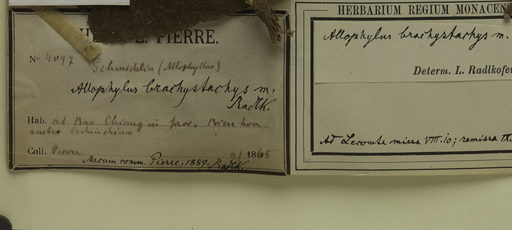 L. PIERRE.
No 4097
Schmidelia (Allophyllus)
Allophylus brachystachys m.
Radlk.
Hab. ad Bao Chiang in prov. Bien hoa
austro Cochinchina
Coll. Pierre 1865
Mecum comm. Pierre, 1889. Radlk.
HERBARIUM REGIUM MONACEN
Allophylus brachystachys m.
Determ. L. Radlkofer
Ad Lecomte missa VIII.10; remissa IX.